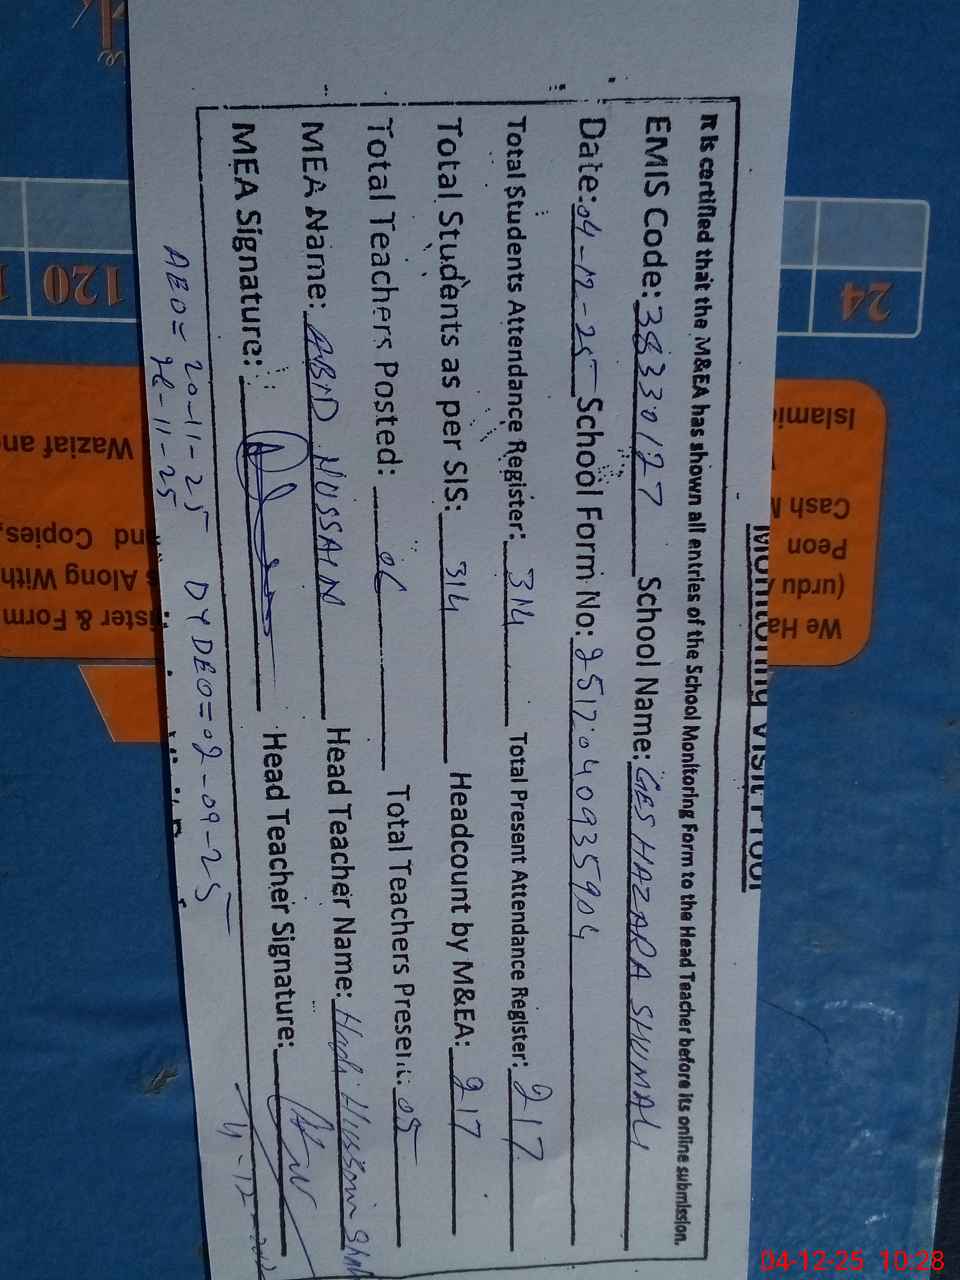 Monitoring Visit Proof
It is certified that the M&EA has shown all entries of the School Monitoring Form to the Head Teacher before its online submission.
EMIS Code: 38330127 School Name: GES HAZARA SHUMALI
Date: 04-12-25 School Form No: 2512040935904
Total Students Attendance Register: 314 Total Present Attendance Register: 217
Total Students as per SIS: 314 Headcount by M&EA: 217
Total Teachers Posted: 06 Total Teachers Present: 05
MEA Name: ABID HUSSAIN Head Teacher Name: Hadi Hussain Shah
MEA Signature: Head Teacher Signature:
4-12-
AEO= 20-11-25 DYDEO=02-09-25
26-11-25
24
120
We Ha
(urdu
Peon
Cash
Islamic
ister & Form
s Along With
and Copies,
Wazlaf an
04-12-25 10:28